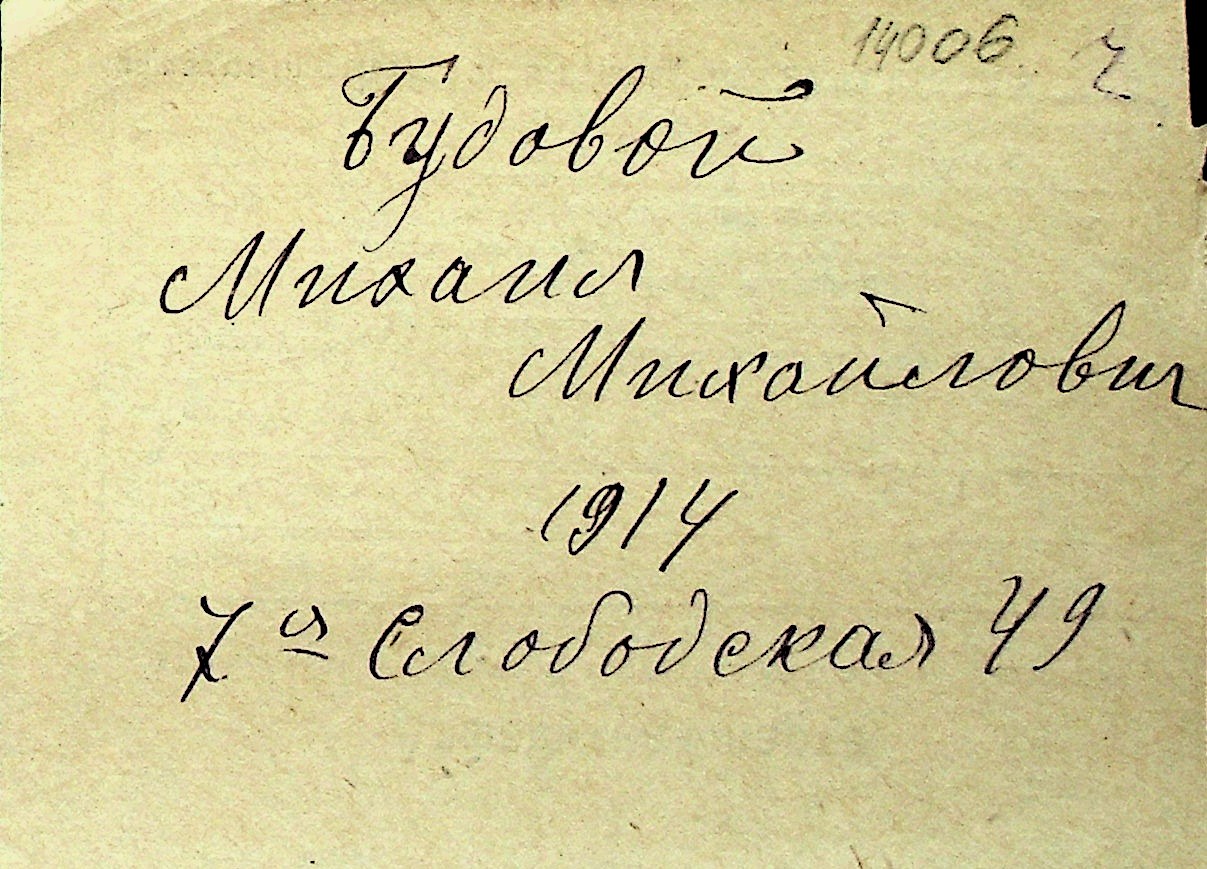 14006 ч
Будовой
Михаил
Михайлович
1914
7ая Слободская 49